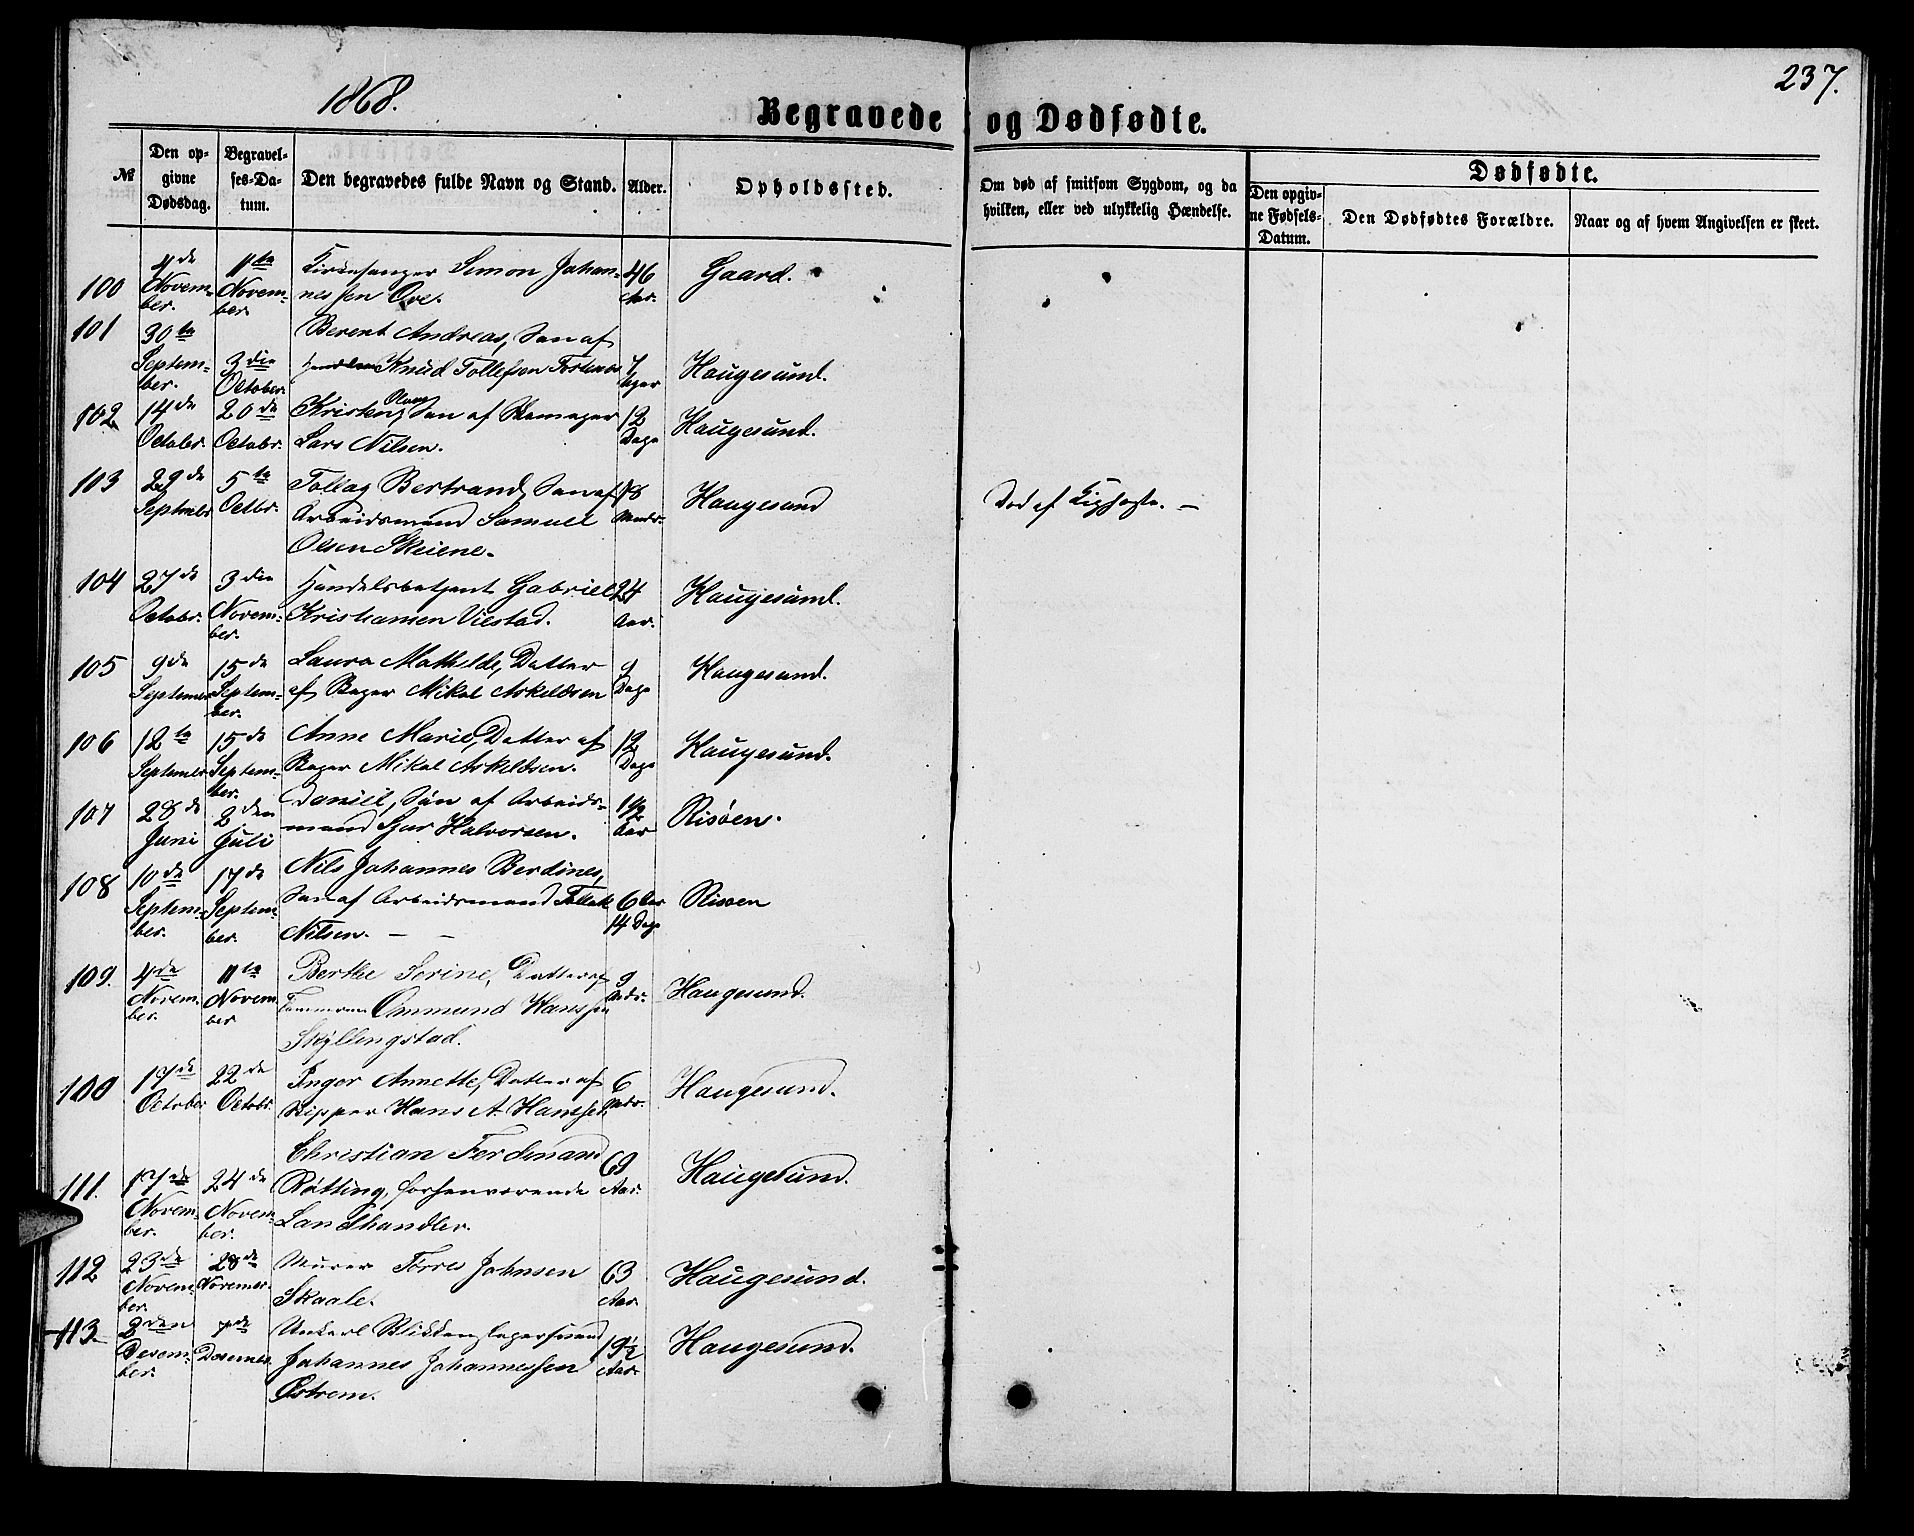 1868.
237.
Begravede og Dødfødte.
№
Den op-
givne
Dødsdag.
Begravel-
ses-Da-
tum.
Den begravedes fulde Navn og Stand.
Alder.
Opholdssted.
Om død af smitsom Sygdom, og da
hvilken, eller ved ulykkelig Hændelse.
Dødfødte.
Den opgiv-
ne Fødsels-
Datum.
Den Dødfødtes Forældre.
Naar og af hvem Angivelsen er skeet.
100
4de
Novem-
ber.
11te
Novem-
ber.
Kirkesanger Simon Johan-
nessen Ove.
46
Aar.
Gaard.
101
30te
Septem-
ber.
3die
October.
Berent Andreas, Søn af
Knud Tollefsen
Haugesund.
102
14de
Octobr.
20de
Octobr.
Kristen Olaus, Søn af Skomager
Lars Nilsen.
12
Dage
Haugesund.
103
29de
Septmbr
5te
Octbr.
Tollag Bertrand, Søn af
Arbeidsmand Samuel
Olsen Skeiene.
18
Mndr.
Haugesund
Død af Kighoste. —
104
27de
Octobr.
3die
Novem-
ber.
Handelsbetjent Gabriel
Kristiansen Viestad.
24
Aar.
Haugesund.
105
9de
Septemer
15de
Septem-
ber.
Laura Mathilde, Datter
af Bager Mikal Askeldsen
9
Dage
Haugesund.
106
12te
Septemer
15de
Septem-
ber.
Anne Marie, Datter af
Bager Mikal Askeldsen.
12
Dage
Haugesund.
107
28de
Juni
2den
Juli
Daniel, Søn af Arbeids-
mand Sjur Halvorsen.
1½
Aar
Risöen.
108
10de
Septem-
ber.
17de
Septem-
ber.
Nils Johannes Berdines,
Søn af Arbeidsmand Tollak
Nilsen. — —
6 Aar
14 Dage
Risöen
109.
4de
Novem-
ber.
11te
Novem-
ber
Berthe Serine, Datter af
Tømmerm. Ommund Hanssen
Skyllingstad.
9
Mndr.
Haugesund.
100
17de
October
22de
Octobr.
Inger Annette, Datter af
Skipper Hans A. Hanssen.
6
Mndr.
Haugesund.
111.
17de
Novem-
ber.
24de
Novem-
ber.
Christian Ferdinand
Røtting, forhenværende
Landhandler.
69
Aar.
Haugesund.
112
23de
Novem-
ber.
28de
Novemer.
Murer Torres Johnsen
Skaale.
63
Aar.
Haugesund.
113
2den
Desem-
ber.
7de
Desemer.
Unkarl Blikkenslagersvend
Johannes Johannessen
Østrem.
19½
Aar.
Haugesund.